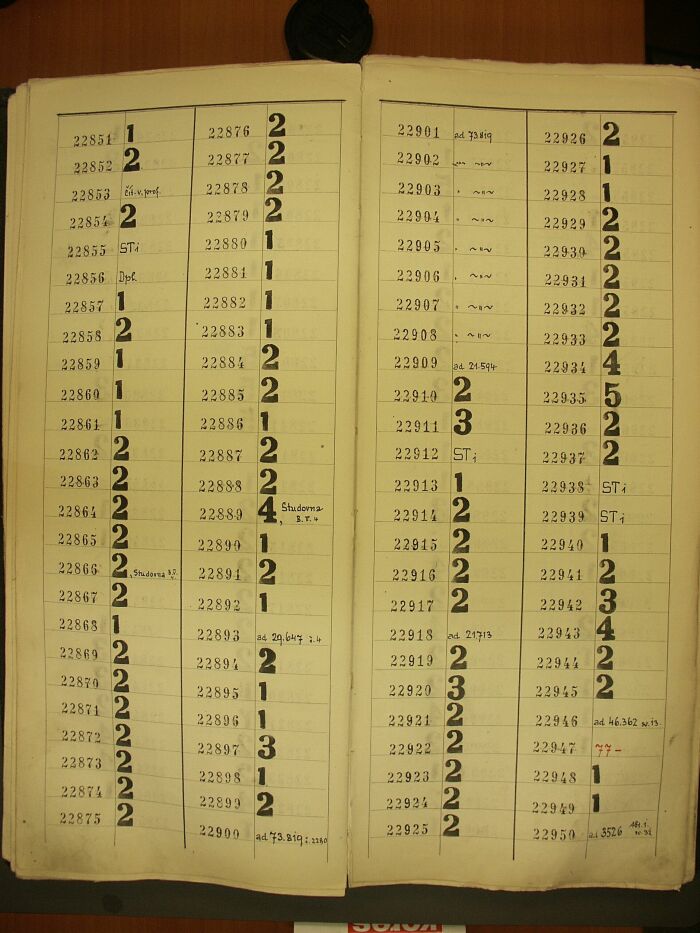 22851 1
22852 2
22853 čís. v. prof.
22854 2
22855 STi
22856 Dpl.
22857 1
22858 2
22859 1
22860 1
22861 1
22862 2
22863 2
22864 2
22865 2
22866 2, Studovna
22867 2
22868 1
22869 2
22870 2
22871 2
22872 2
22873 2
22874 2
22875 2
22876 2
22877 2
22878 2
22879 2
22880 1
22881 1
22882 1
22883 1
22884 2
22885 2
22886 1
22887 2
22888 2
22889 4, Studovna
B.V.4
22890 1
22891 2
22892 1
22893 ad 29.647 i.4
22894 2
22895 1
22896 1
22897 3
22898 1
22899 2
22900 ad 73.819 i. 2280
22901 ad 73819
22902 -"- ~"~
22903 " ~"~
22904 " ~"~
22905 " ~"~
22906 " ~"~
22907 " ~"~
22908 " ~"~
22909 ad 21.594
22910 2
22911 3
22912 STi
22913 1
22914 2
22915 2
22916 2
22917 2
22918 ad 21713
22919 2
22920 3
22921 2
22922 2
22923 2
22924 2
22925 2
22926 2
22927 1
22928 1
22929 2
22930 2
22931 2
22932 2
22933 2
22934 4
22935 5
22936 2
22937 2
22938 STi
22939 STi
22940 1
22941 2
22942 3
22943 4
22944 2
22945 2
22946 ad 46.362 sv. 13.
22947 77-
22948 1
22949 1
22950 ad 3526